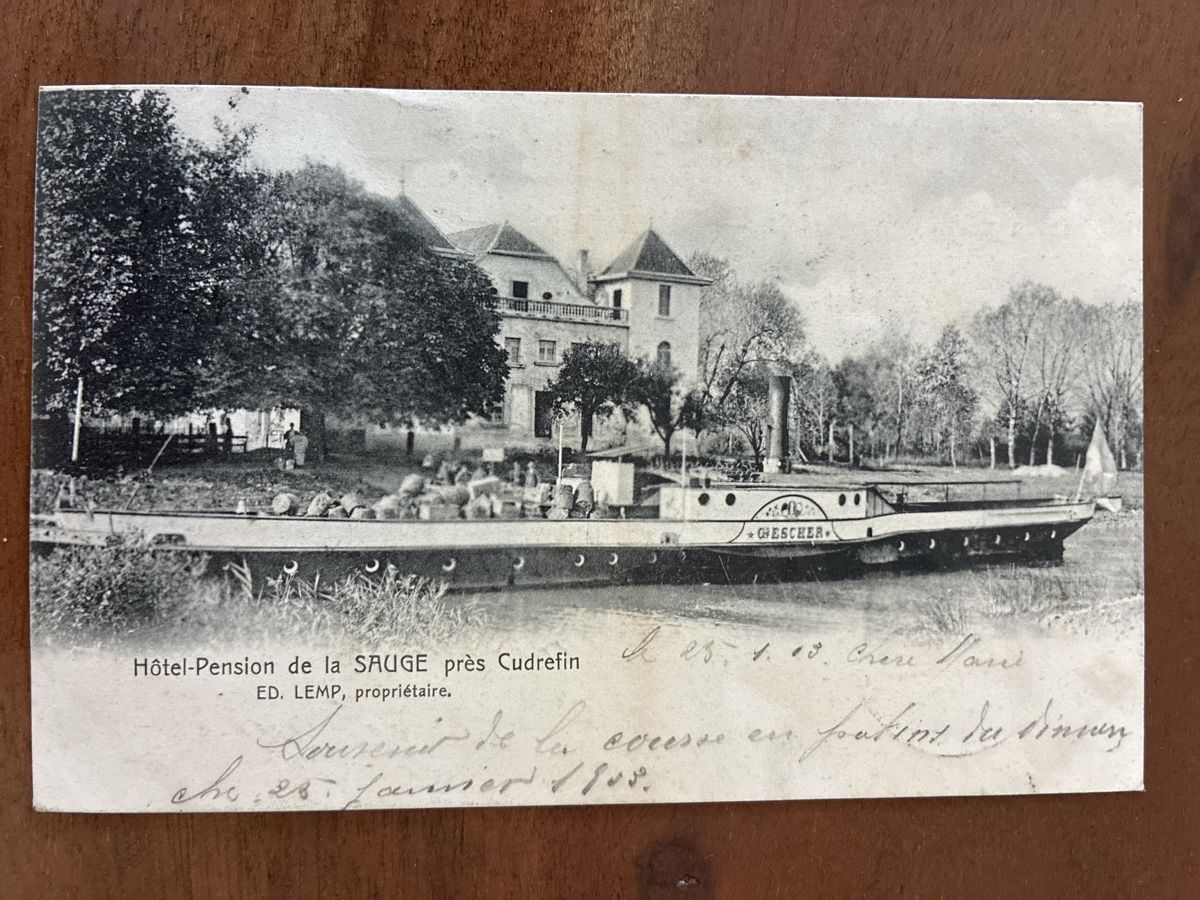 G. ESCHER
Hôtel-Pension de la SAUGE près Cudrefin
ED. LEMP, propriétaire.
le 25. 1. 03. Chère Marie
Souvenir de la course en patins du dimanche 25. Janvier 1903.